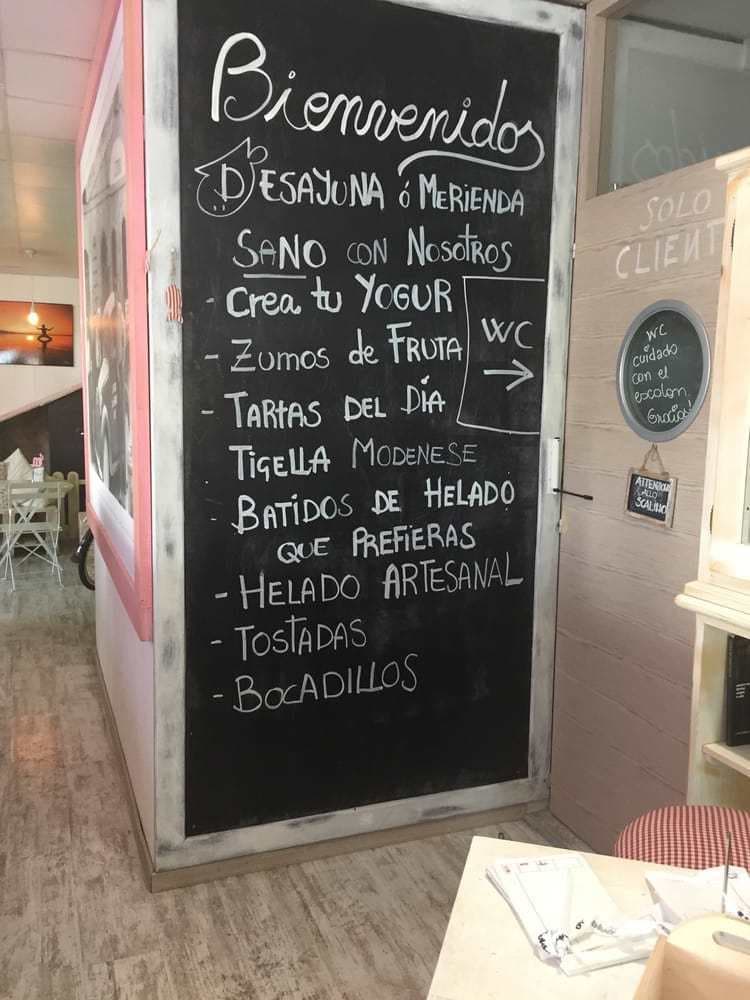 Bienvenidos
DESAYUNA ó MERIENDA
SANO CON NOSOTROS
- Crea tu YOGUR
- Zumos de FRUTA
- TARTAS DEL DÍA
TIGELLA MODENESE
- BATIDOS DE HELADO
QUE PREFIERAS
- HELADO ARTESANAL
- TOSTADAS
- BOCADILLOS
WC
→
SOLO
CLIENT
WC
cuidado
con el
escalon.
Gracias!
ATTENZIONE
ALLO
SCALINO